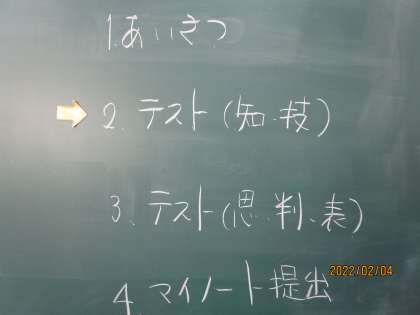 1.あいさつ
2. テスト(知.技)
3. テスト(思.判.表)
4. マイノート提出
2022/02/04